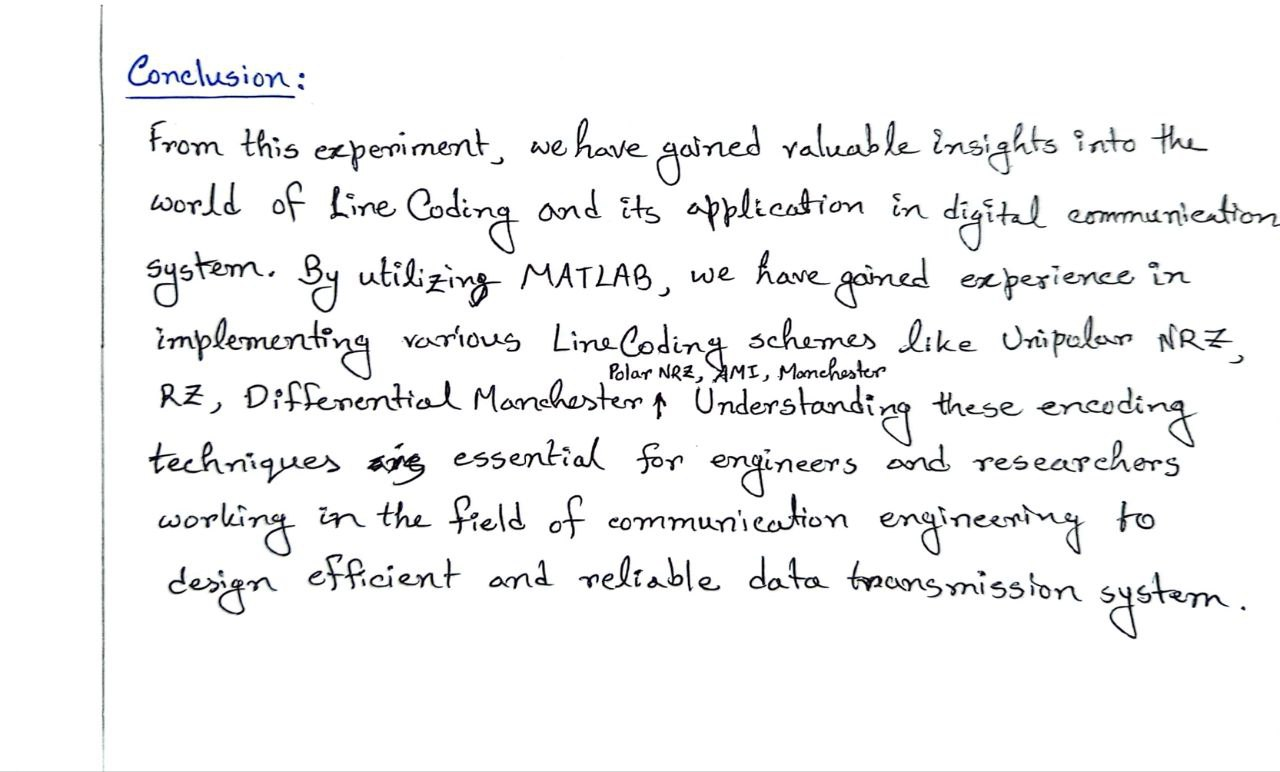 Conclusion:
From this experiment, we have gained valuable insights into the
world of Line Coding and its application in digital communication
system. By utilizing MATLAB, we have gained experience in
implementing various Line Coding schemes like Unipolar NRZ,
Polar NRZ, AMI, Manchester
RZ, Differential Manchester ↑ Understanding these encoding
techniques is essential for engineers and researchers
working in the field of communication engineering to
design efficient and reliable data transmission system.